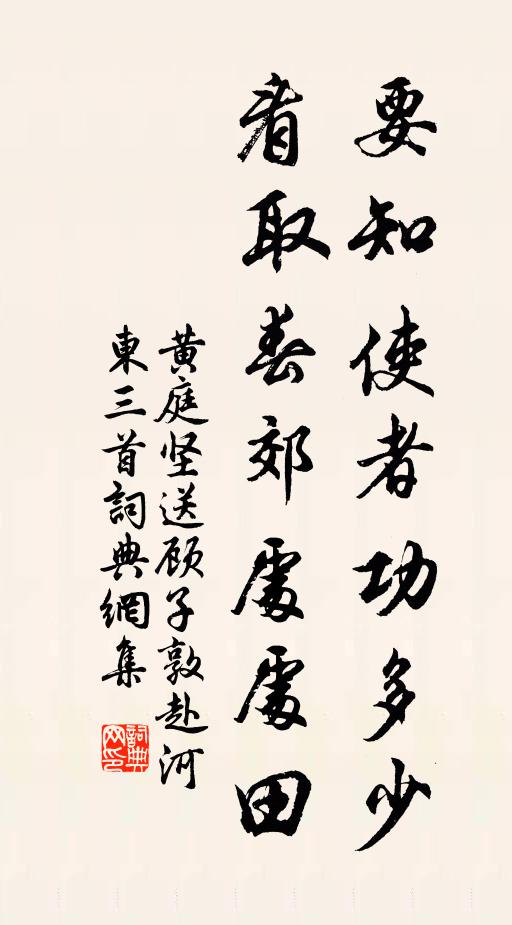 要知使者功多少
看取春郊處處田
黄庭坚送顾子敦赴河
東三首詞典網集
詞典
网印